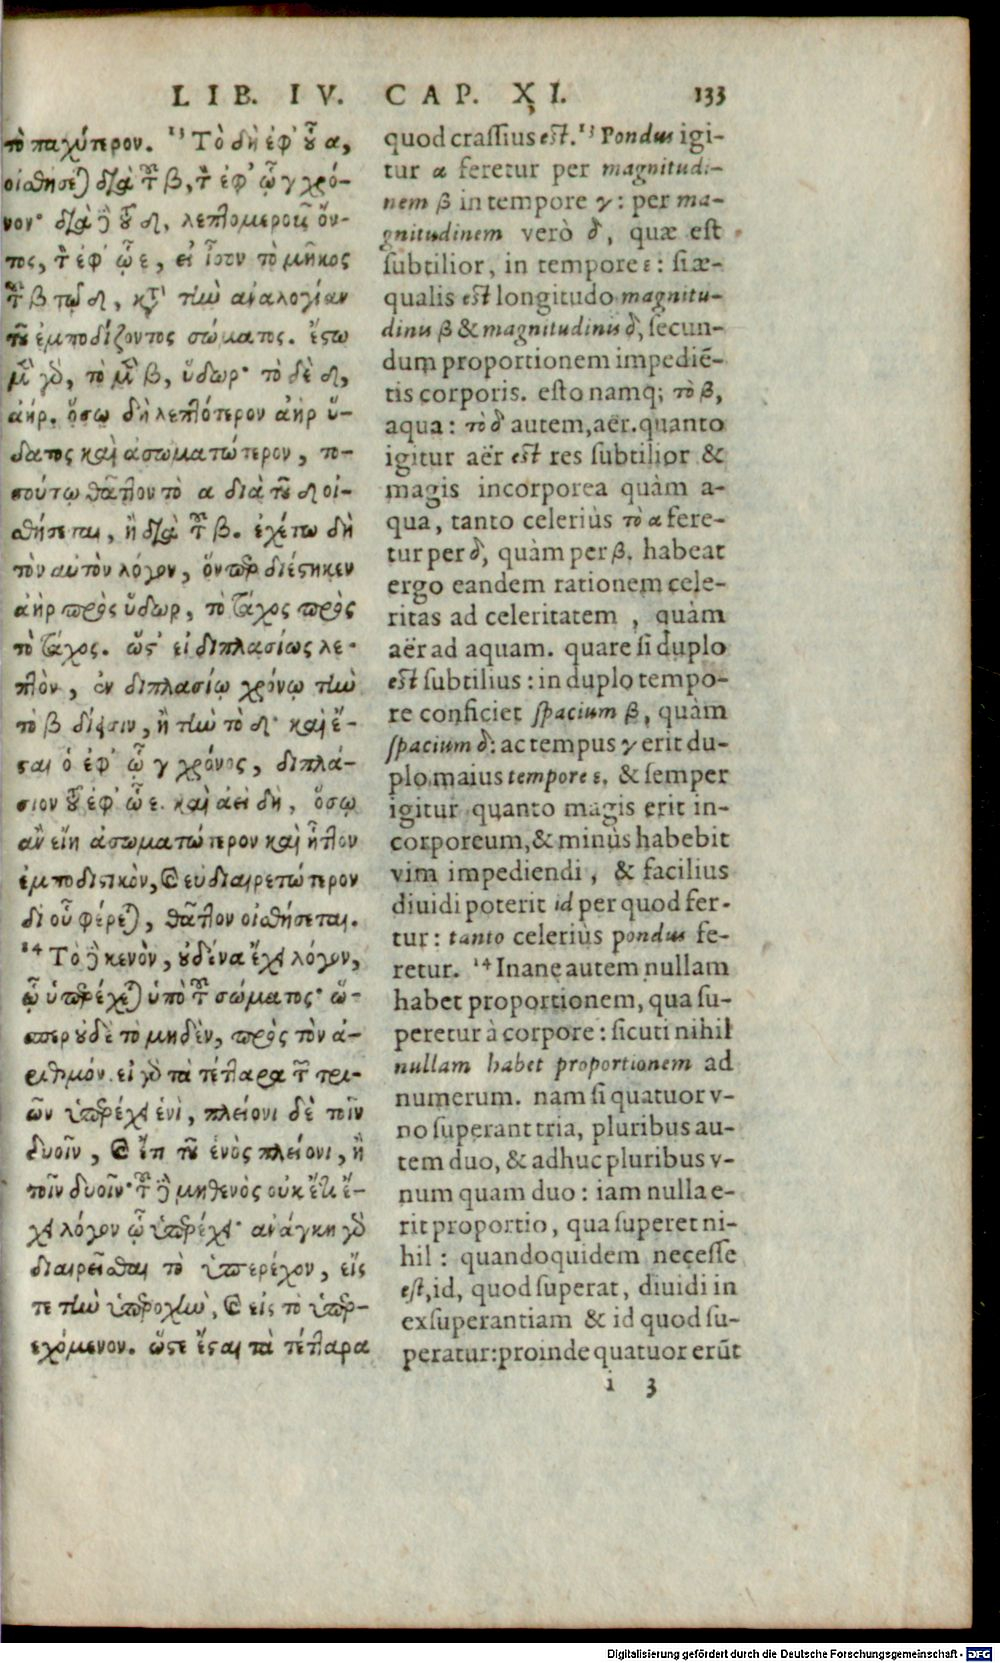 LIB. IV. CAP. XI. 133
τὸ παχύτερον. ¹³ Τὸ δὴ ἐφ' οὗ α,
οἰσθήσεται διὰ τῆς β, τὸν ἐφ' ᾧ γ χρό-
νον· διὰ δὲ τοῦ δ, λεπτομεροῦς ὄν-
τος, τὸν ἐφ' ᾧ ε, εἰ ἴσον τὸ μῆκος
τῆς β τῷ δ, κατὰ τὴν ἀναλογίαν
τοῦ ἐμποδίζοντος σώματος. ἔστω
μὲν γὰρ, τὸ μὲν β, ὕδωρ· τὸ δὲ δ,
ἀήρ. ὅσῳ δὴ λεπτότερον ἀὴρ ὕ-
δατος καὶ ἀσωματώτερον, το-
σούτῳ θᾶττον τὸ α διὰ τοῦ δ οἰ-
σθήσεται, ἢ διὰ τῆς β. ἐχέτω δὴ
τὸν αὐτὸν λόγον, ὅνπερ διέστηκεν
ἀὴρ πρὸς ὕδωρ, τὸ τάχος πρὸς
τὸ τάχος. ὥστ' εἰ διπλασίως λε-
πτὸν, ἐν διπλασίῳ χρόνῳ τὴν
τὸ β δίεισιν, ἢ τὴν τὸ δ· καὶ ἔ-
σται ὁ ἐφ' ᾧ γ χρόνος, διπλά-
σιον τοῦ ἐφ' ᾧ ε. καὶ ἀεὶ δὴ, ὅσῳ
ἂν εἴη ἀσωματώτερον καὶ ἧττον
ἐμποδιστικὸν, καὶ εὐδιαιρετώτερον
δι' οὗ φέρεται, θᾶττον οἰσθήσεται.
¹⁴ Τὸ δὲ κενὸν, οὐδένα ἔχει λόγον,
ᾧ ὑπερέχεται ὑπὸ τοῦ σώματος· ὥ-
σπερ οὐδὲ τὸ μηδὲν, πρὸς τὸν ἀ-
ριθμόν. εἰ γὰρ τὰ τέτταρα τῶν τρι-
ῶν ὑπερέχει ἑνὶ, πλείονι δὲ τοῖν
δυοῖν, καὶ ἔτι τοῦ ἑνὸς πλείονι, ἢ
τοῖν δυοῖν· τοῦ δὲ μηθενὸς οὐκ ἔτι ἔ-
χει λόγον ᾧ ὑπερέχει· ἀνάγκη γὰρ
διαιρεῖσθαι τὸ ὑπερέχον, εἴς
τε τὴν ὑπεροχὴν, καὶ εἰς τὸ ὑπερ-
εχόμενον. ὥστε ἔσται τὰ τέτταρα
quod crassius est. ¹³ Pondus igi-
tur α feretur per magnitudi-
nem β in tempore γ: per ma-
gnitudinem verò δ, quæ est
subtilior, in tempore ε: si æ-
qualis est longitudo magnitu-
dinis β & magnitudinis δ, secun-
dum proportionem impediē-
tis corporis. esto namq; τὸ β,
aqua: τὸ δ autem, aër. quanto
igitur aër est res subtilior &
magis incorporea quàm a-
qua, tanto celeriùs τὸ α fere-
tur per δ, quàm per β. habeat
ergo eandem rationem cele-
ritas ad celeritatem, quàm
aër ad aquam. quare si duplo
est subtilius: in duplo tempo-
re conficiet spacium β, quàm
spacium δ: ac tempus γ erit du-
plo maius tempore ε. & semper
igitur quanto magis erit in-
corporeum, & minùs habebit
vim impediendi, & facilius
diuidi poterit id per quod fer-
tur: tanto celeriùs pondus fe-
retur. ¹⁴ Inane autem nullam
habet proportionem, qua su-
peretur à corpore: sicuti nihil
nullam habet proportionem ad
numerum. nam si quatuor v-
no superant tria, pluribus au-
tem duo, & adhuc pluribus v-
num quam duo: iam nulla e-
rit proportio, qua superet ni-
hil: quandoquidem necesse
est, id, quod superat, diuidi in
exsuperantiam & id quod su-
peratur: proinde quatuor erūt
i 3
Digitalisierung gefördert durch die Deutsche Forschungsgemeinschaft - DFG